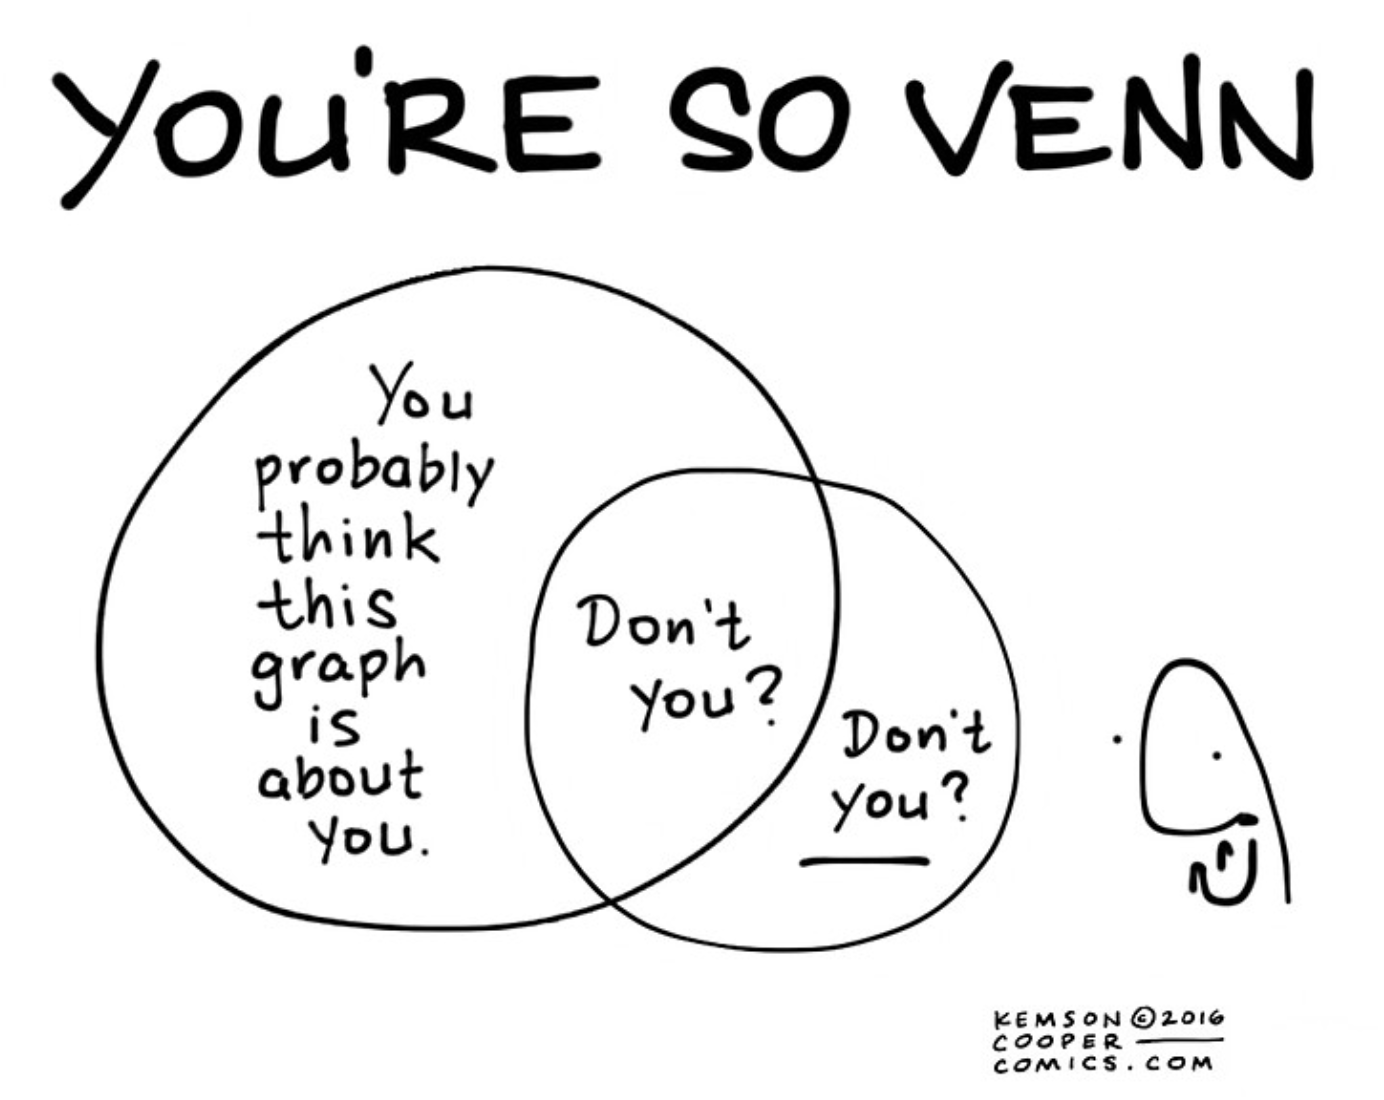 YOU'RE SO VENN
You
probably
think
this
graph
is
about
you.
Don't
you?
Don't
you?
KEMSON ©2016
COOPER
COMICS.COM